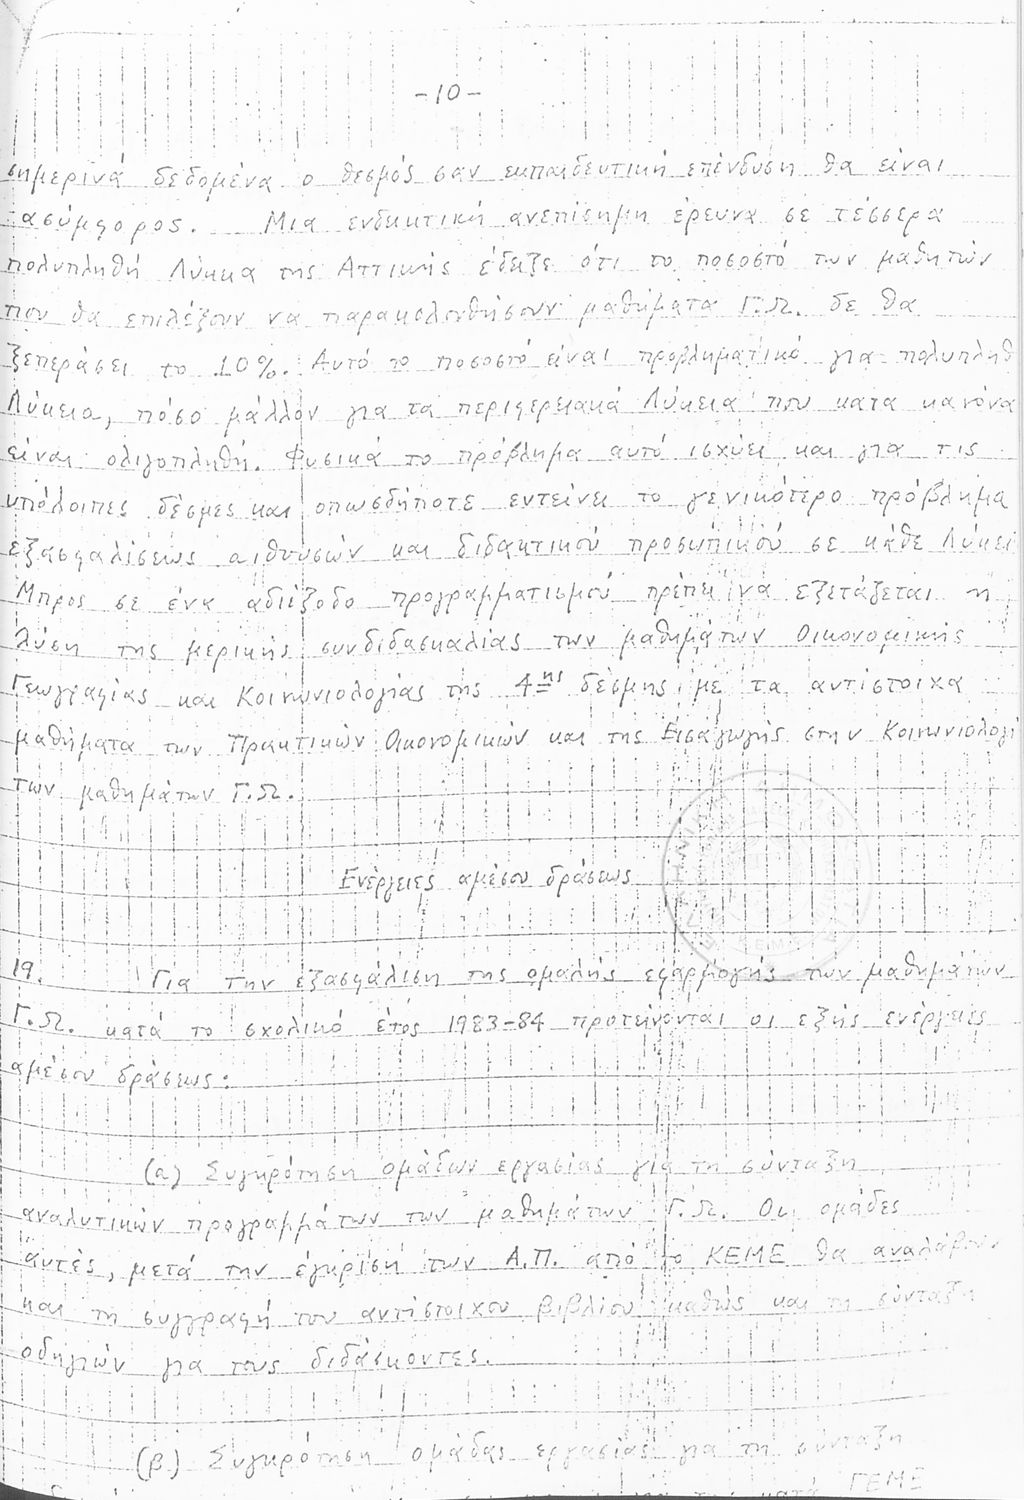 -10-
σημερινά δεδομένα ο θεσμός σαν εκπαιδευτική επένδυση θα είναι
ασύμφορος. Μια ενδεικτική ανεπίσημη έρευνα σε τέσσερα
πολυπληθή Λύκεια της Αττικής έδειξε ότι το ποσοστό των μαθητών
που θα επιλέξουν να παρακολουθήσουν μαθήματα Γ.Π. δε θα
ξεπεράσει το 10%. Αυτό το ποσοστό είναι προβληματικό για πολυπληθ
Λύκεια, πόσο μάλλον για τα περιφερειακά Λύκεια που κατά κανόνα
είναι ολιγοπληθή. Φυσικά το πρόβλημα αυτό ισχύει και για τις
υπόλοιπες δέσμες και οπωσδήποτε εντείνει το γενικότερο πρόβλημα
εξασφαλίσεως αιθουσών και διδακτικού προσωπικού σε κάθε Λύκει
Μπρος σε ένα αδιέξοδο προγραμματισμού πρέπει να εξετάζεται η
λύση της μερικής συνδιδασκαλίας των μαθημάτων Οικονομικής
Γεωγραφίας και Κοινωνιολογίας της 4ης δέσμης με τα αντίστοιχα
μαθήματα των Πρακτικών Οικονομικών και της Εισαγωγής στην Κοινωνιολογί
των μαθημάτων Γ.Π.
Ενέργειες αμέσου δράσεως
19. Για την εξασφάλιση της ομαλής εφαρμογής των μαθημάτων
Γ.Π. κατά το σχολικό έτος 1983-84 προτείνονται οι εξής ενέργειες
αμέσου δράσεως:
(α) Συγκρότηση ομάδων εργασίας για τη σύνταξη
αναλυτικών προγραμμάτων των μαθημάτων Γ.Π. Οι ομάδες
αυτές, μετά την έγκριση των Α.Π. από το ΚΕΜΕ θα αναλάβουν
και τη συγγραφή του αντίστοιχου βιβλίου καθώς και τη σύνταξη
οδηγιών για τους διδάσκοντες.
(β) Συγκρότηση ομάδας εργασίας για τη σύνταξη